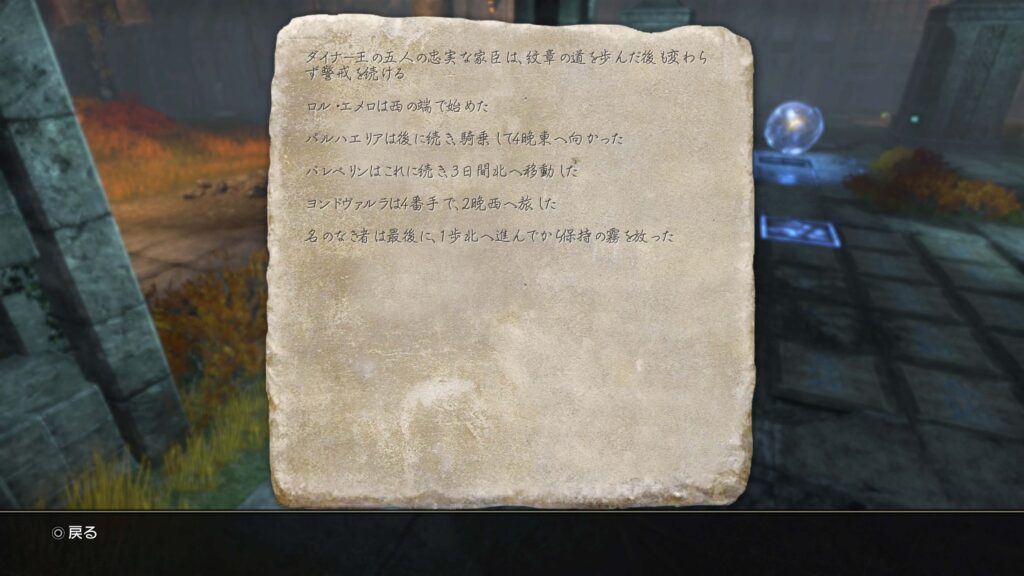 ダイナー王の五人の忠実な家臣は、紋章の道を歩んだ後も変わら
ず警戒を続ける
ロル・エメロは西の端で始めた
バルハエリアは後に続き、騎乗して4晩東へ向かった
バレベリンはこれに続き、3日間北へ移動した
ヨンドヴァルラは4番手で、2晩西へ旅した
名のなき者は最後に、1歩北へ進んでから保持の霧を放った
◎ 戻る